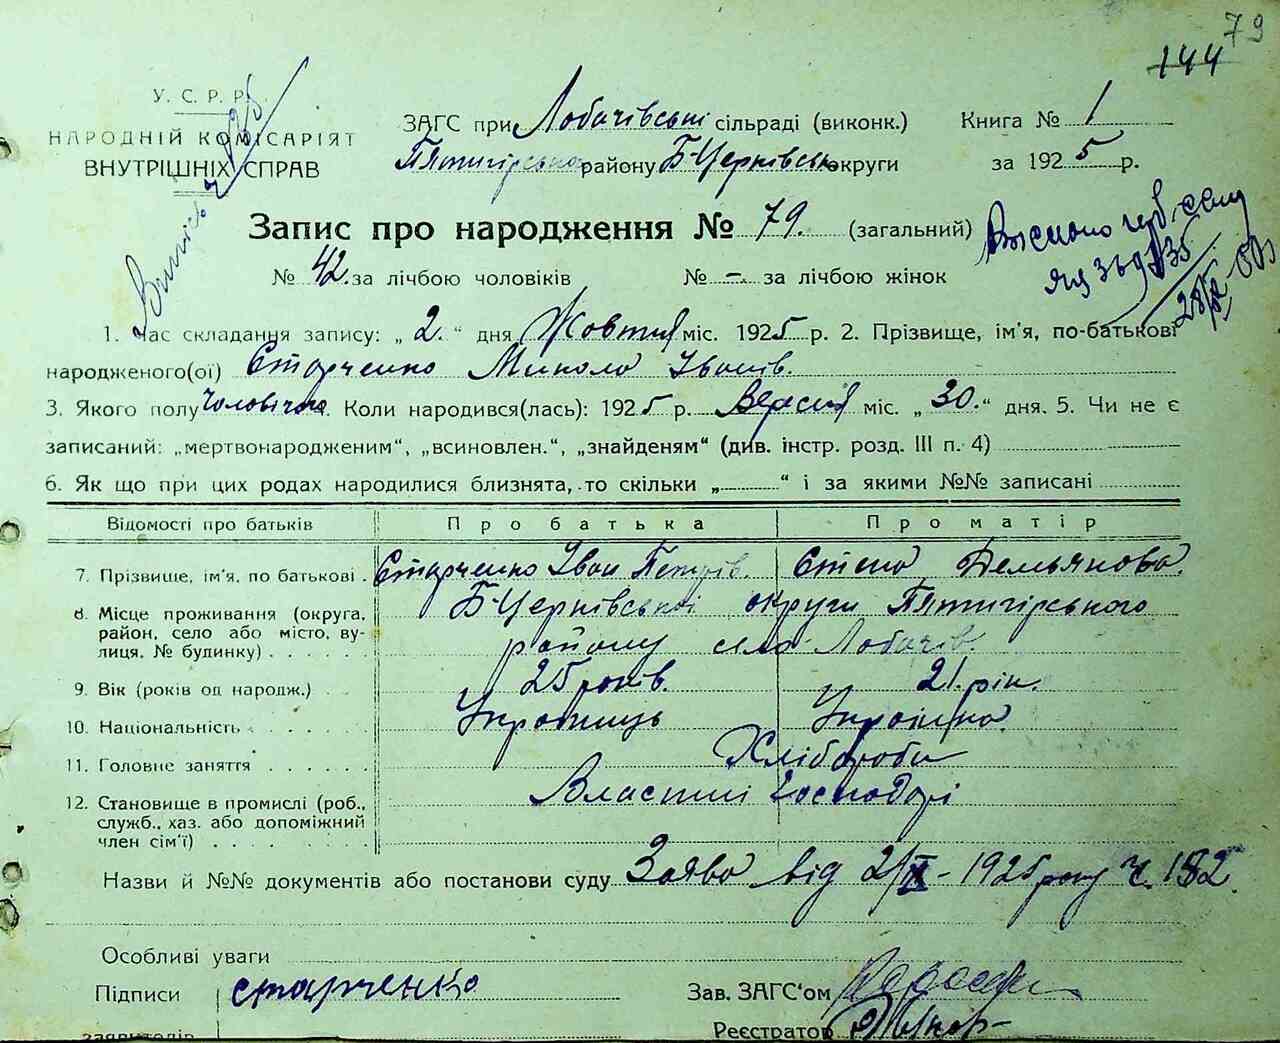 79
144
У. С. Р. Р.
НАРОДНІЙ КОМІСАРІЯТ
ВНУТРІШНІХ СПРАВ
ЗАГС при Лобачівські сільраді (виконк.) Книга № 1
Пятигірського району Б-Церківськ округи за 1925 р.
Запис про народження № 79. (загальний)
№ 42. за лічбою чоловіків № – за лічбою жінок
1. Час складання запису: „ 2. “ дня Жовтня міс. 1925 р. 2. Прізвище, ім'я, по-батькові
народженого(ої) Старченко Микола Іванів.
3. Якого полу Чоловічого. Коли народився(лась): 1925 р. Вересня міс. „ 30. “ дня. 5. Чи не є
записаний: „мертвонародженим“, „всиновлен.“, „знайденям“ (див. інстр. розд. III п. 4)
6. Як що при цих родах народилися близнята, то скільки „ “ і за якими №№ записані
Відомості про батьків Про батька Про матір
7. Прізвище, ім'я, по батькові . Старченко Іван Петрів. Степа Демьянова.
8. Місце проживання (округа, Б-Церківської округи Пятигірського
район, село або місто, ву-
лиця, № будинку) району село Лобачів.
9. Вік (років од народж.) 25 років. 21. рік.
10. Національність Українець Українка
11. Головне заняття Хлібороби
12. Становище в промислі (роб., Властні господарі
служб., хаз. або допоміжний
член сім'ї)
Назви й №№ документів або постанови суду Заява від 2/X - 1925 року ч. 182.
Особливі уваги
Підписи старченко Зав. ЗАГС'ом
заявителів Реєстратор